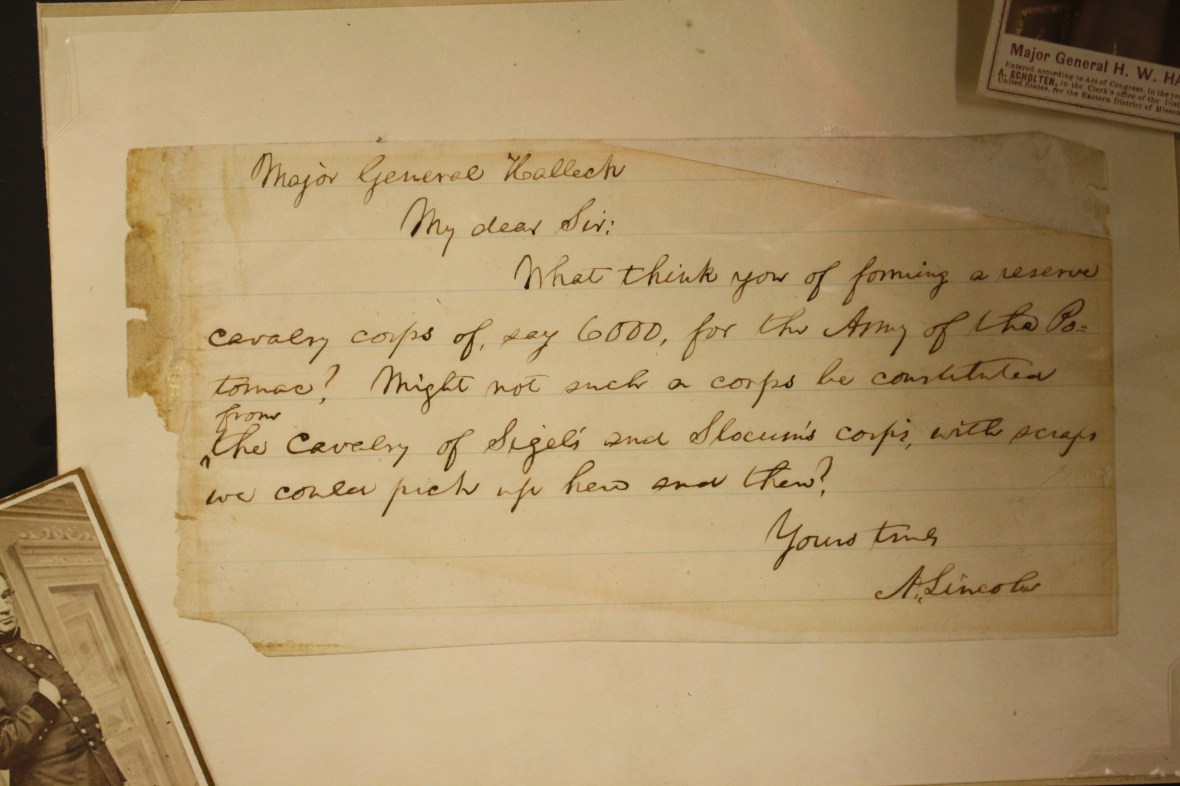 Major General H. W. HA
Entered according to Act of Congress, in the ye
A. SCHOLTEN, in the Clerk's office of the Dist
United States, for the Eastern District of Missou
Major General Halleck
My dear Sir:
What think you of forming a reserve
cavalry corps of, say 6000, for the Army of the Po=
tomac? Might not such a corps be constituted
from
^the cavalry of Sigel's and Slocum's corps, with scraps
we could pick up here and there?
Yours truly
A. Lincoln